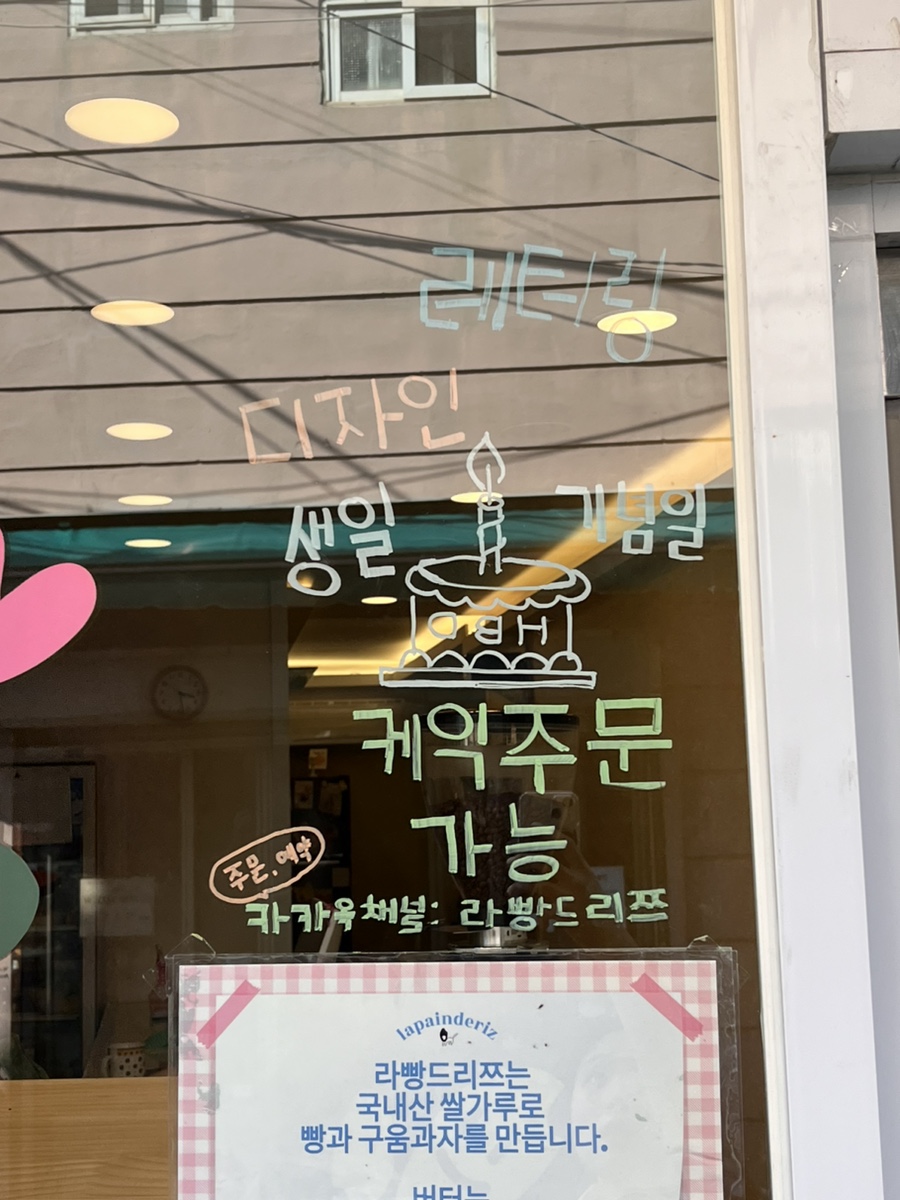 레터링
디자인
생일
기념일
HBD
케익주문
가능
주문, 예약
카카옥채널: 라빵드리쯔
lapainderiz
라빵드리쯔는
국내산 쌀가루로
빵과 구움과자를 만듭니다.
버터는